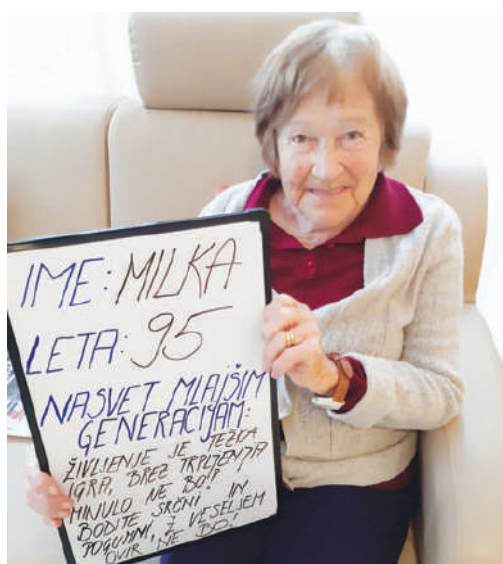 IME: MILKA
LETA: 95
NASVET MLAJŠIM
GENERACIJAM:
ŽIVLJENJE JE TEŽKA
IGRA, BREZ TRPLJENJA
MINULO NE BO!
BODITE SRČNI IN
POGUMNI, Z VESELJEM
OVIR NE BO!